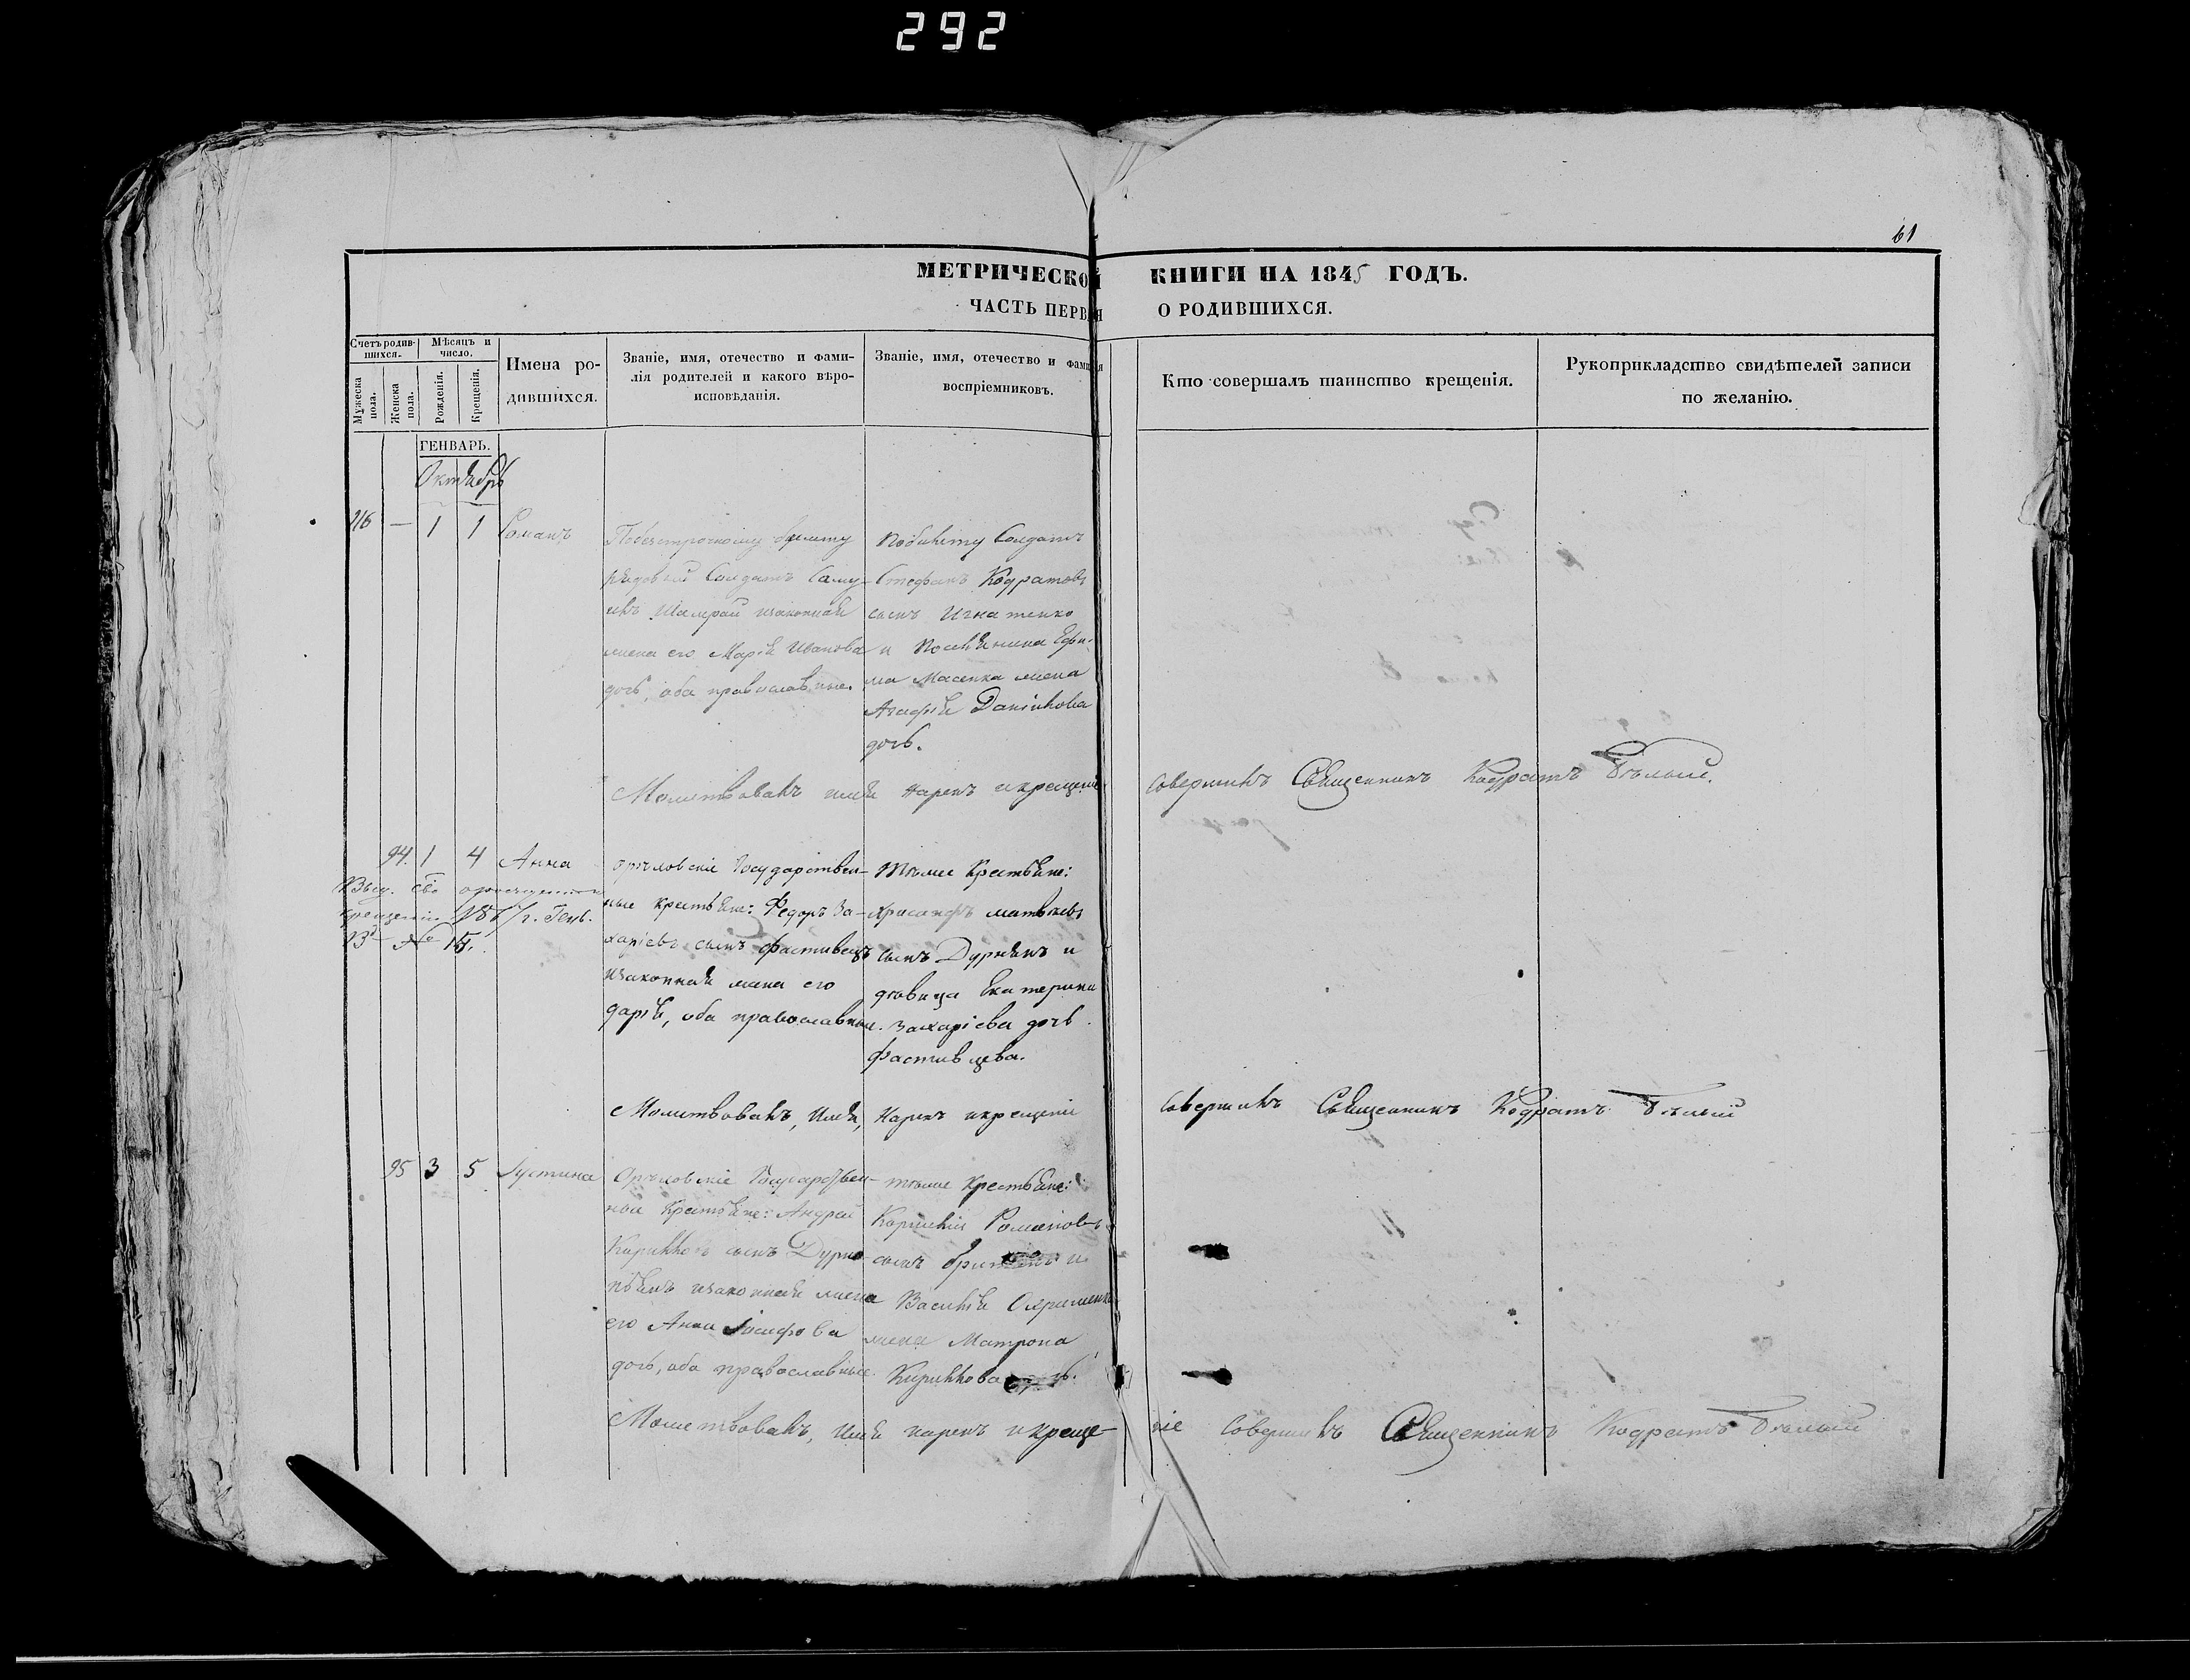 292
61
МЕТРИЧЕСКОЙ КНИГИ НА 1845 ГОДЪ.
ЧАСТЬ ПЕРВАЯ О РОДИВШИХСЯ.
Счетъ родив-
шихся.
Мѣсяцъ и
число.
Мужеска
пола.
Женска
пола.
Рожденія.
Крещенія.
Имена ро-
дившихся.
Званіе, имя, отечество и фами-
лія родителей и какого вѣро-
исповѣданія.
Званіе, имя, отечество и фамилія
воспріемниковъ.
Кто совершалъ таинство крещенія.
Рукоприкладство свидѣтелей записи
по желанію.
ГЕНВАРЬ.
Октябрь
116 — 1 1 Романъ
Побезсрочному билету
рядовый Солдатъ Саму-
илъ изаконная
жена его Марія Иванова
дочь, оба православные.
Побилету Солдатъ
Стефанъ Кодратовъ
сынъ Игнатенко
и Поселянина Ефи-
ма Масенка жена
Агафія Даніилова
дочь.
Молитвовалъ имя нарекъ икрещеніе
совершилъ Священникъ Кодратъ Бѣлый.
94. 1 4 Анна
Выд. сво о
крещеніи 186 г. Генв.
13 № 15.
Орѣловскіе Государствен-
ные крестьяне: Федоръ За-
харіевъ сынъ Фастивецъ
изаконная жена его
дарія, оба православные.
Тѣже Крестьяне:
Хрисанфъ матвѣевъ
сынъ Дурнянъ и
дѣвица Екатерина
Захаріева дочь
Фастивцева.
Молитвовалъ, имя, Нарекъ икрещеніе
совершилъ Священникъ Кодратъ Бѣлый
95 3 5 Іустина
Орѣловскіе Государствен-
ные Крестьяне: Андрей
Кириловъ сынъ Дурно-
пьянъ изаконная жена
его Анна Іосифова
дочь, оба православные.
тѣже Крестьяне:
Корнилій Романовъ
сынъ и
Василія
жена Матрона
Кирилова
Молитвовалъ, имя нарекъ икреще-
ніе Совершилъ Священникъ Кодратъ Бѣлый